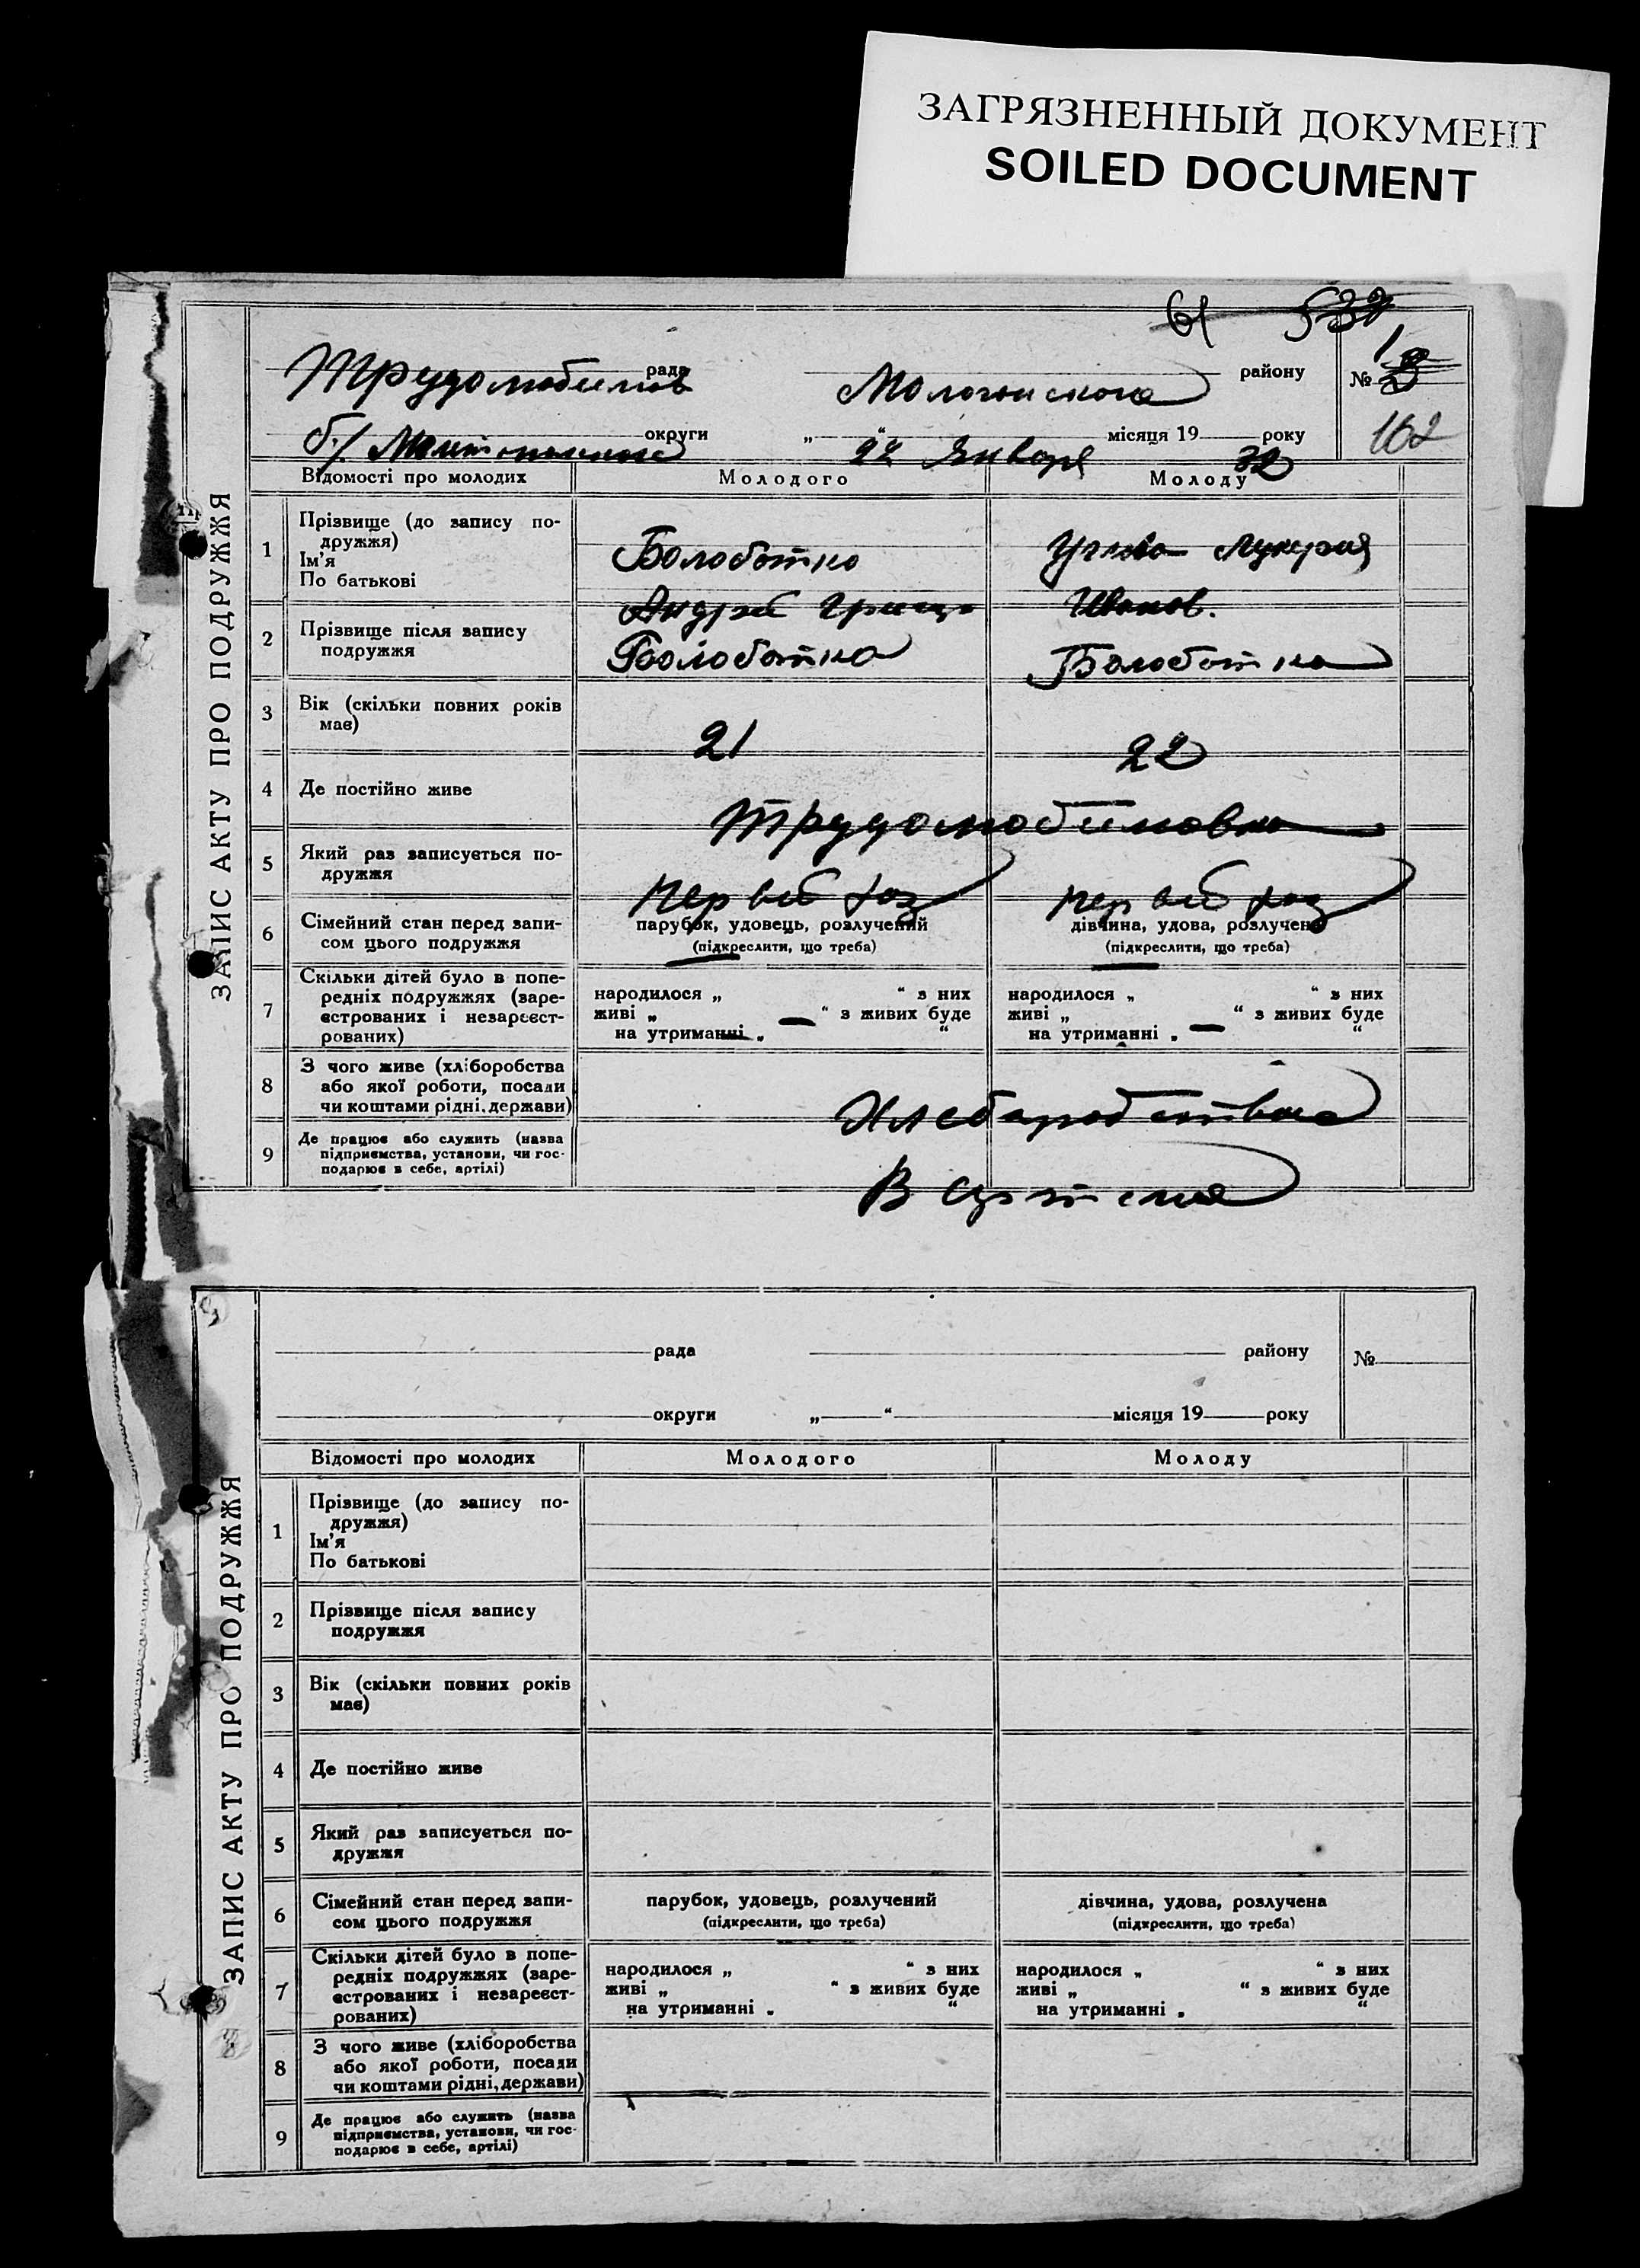 ЗАГРЯЗНЕННЫЙ ДОКУМЕНТ
SOILED DOCUMENT
61 532
Трудолюбимов рада Молочанского району № 1
б/ Мелитопольского округи „ 22 “ Января місяця 19 32 року 162
ЗАПИС АКТУ ПРО ПОДРУЖЖЯ
Відомості про молодих Молодого Молоду
1 Прізвище (до запису по-
дружжя)
Ім'я
По батькові
Болоботко Лукерия
Андрей Иванов.
2 Прізвище після запису
подружжя
Болоботко Болоботко
3 Вік (скільки повних років
має)
21 22
4 Де постійно живе
Трудолюбимовка
5 Який раз записується по-
дружжя
первый раз первый раз
6 Сімейний стан перед запи-
сом цього подружжя
парубок, удовець, розлучений дівчина, удова, розлучена
(підкреслити, що треба) (підкреслити, що треба)
7 Скільки дітей було в попе-
редніх подружжях (заре-
єстрованих і незареєст-
рованих)
народилося „ “ з них народилося „ “ з них
живі „ — “ з живих буде живі „ — “ з живих буде
на утриманні „ “ на утриманні „ “
8 З чого живе (хліборобства
або якої роботи, посади
чи коштами рідні, держави)
Хлебаробства
9 Де працює або служить (назва
підприємства, установи, чи гос-
подарює в себе, артілі)
В
рада району №
округи „ “ місяця 19 року
ЗАПИС АКТУ ПРО ПОДРУЖЖЯ
Відомості про молодих Молодого Молоду
1 Прізвище (до запису по-
дружжя)
Ім'я
По батькові
2 Прізвище після запису
подружжя
3 Вік (скільки повних років
має)
4 Де постійно живе
5 Який раз записується по-
дружжя
6 Сімейний стан перед запи-
сом цього подружжя
парубок, удовець, розлучений дівчина, удова, розлучена
(підкреслити, що треба) (підкреслити, що треба)
7 Скільки дітей було в попе-
редніх подружжях (заре-
єстрованих і незареєст-
рованих)
народилося „ “ з них народилося „ “ з них
живі „ “ з живих буде живі „ “ з живих буде
на утриманні „ “ на утриманні „ “
8 З чого живе (хліборобства
або якої роботи, посади
чи коштами рідні, держави)
9 Де працює або служить (назва
підприємства, установи, чи гос-
подарює в себе, артілі)